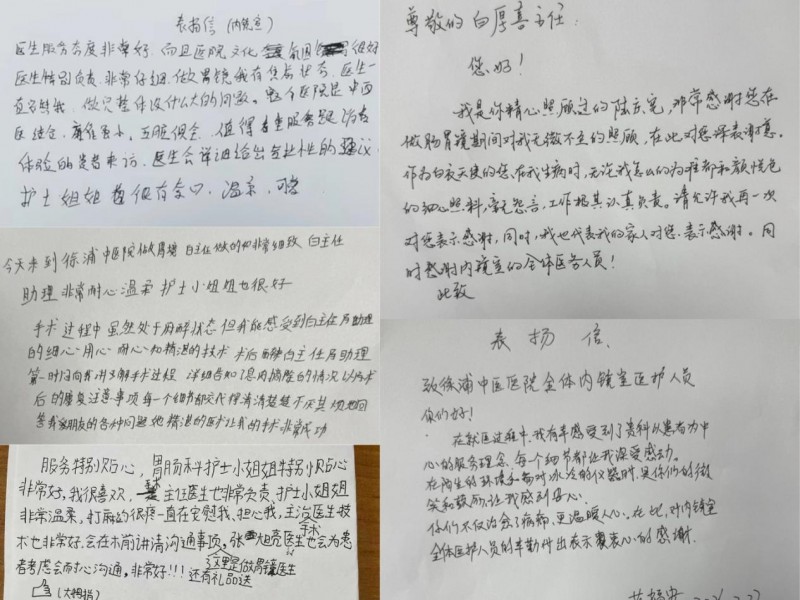 表扬信(内镜室)
医生服务态度非常好,而且医院文化氛围组好
医生特别负责、非常仔细,做胃镜我有焦虑状态,医生一
直安慰我,做完整体没什么大的问题。整个医院是中西
医结合,麻雀虽小,五脏俱全,值得注重服务超治疗
体验的患者来访,医生会详细给出专业性的建议
护士姐姐都很有亲口、温柔、可亲
今天来到徐浦中医院做胃镜 白主任做的非常细致 白主任
助理非常耐心温柔 护士小姐姐也很好
手术过程中虽然处于麻醉状态 但我能感受到白主任及助理
的细心 用心 耐心和精湛的技术 术后 白主任及助理
第一时间向我讲了解手术过程 详细告知了息肉摘除的情况以及术
后的康复注意事项 每一个细节都交代得清清楚楚 不厌其烦地回
答我和朋友的各种问题 她精湛的医术让我的手术非常成功
服务特别贴心,胃肠科护士小姐姐特别贴心
非常好,我很喜欢,手术主任医生也非常负责、护士小姐姐
非常温柔,打麻药很疼一直在安慰我、担心我,主治医生技
术也非常好,会在术前讲清沟通事项,张旭亮医生也会为患
手术
者考虑会耐心沟通,非常好!!!
这里是做胃镜医生
还有礼品送
(大拇指)
尊敬的白厚喜主任:
您好!
我是你精心照顾过的陆东宪,非常感谢您在
做肠胃镜期间对我无微不至的照顾,在此对您深表谢意。
作为白衣天使的您,在我生病时,无论我怎么的为难都和颜悦色
的细心照料,毫无怨言,工作极其认真负责。请允许我再一次
对您表示感谢,同时,我也代表我的家人对您表示感谢。同
时感谢内镜室的全体医务人员!
此致
表扬信
致徐浦中医医院全体内镜室医护人员
你们好!
在就医过程中,我有幸感受到了贵科以患者为中
心的服务理念,每个细节都让我深受感动。
在陌生的环境和面对冰冷的仪器时,是你们的微
笑和鼓励,让我感到安心。
你们不仅治愈了病痛,更温暖人心。在此,对内镜室
全体医护人员的辛勤付出表示衷心的感谢。